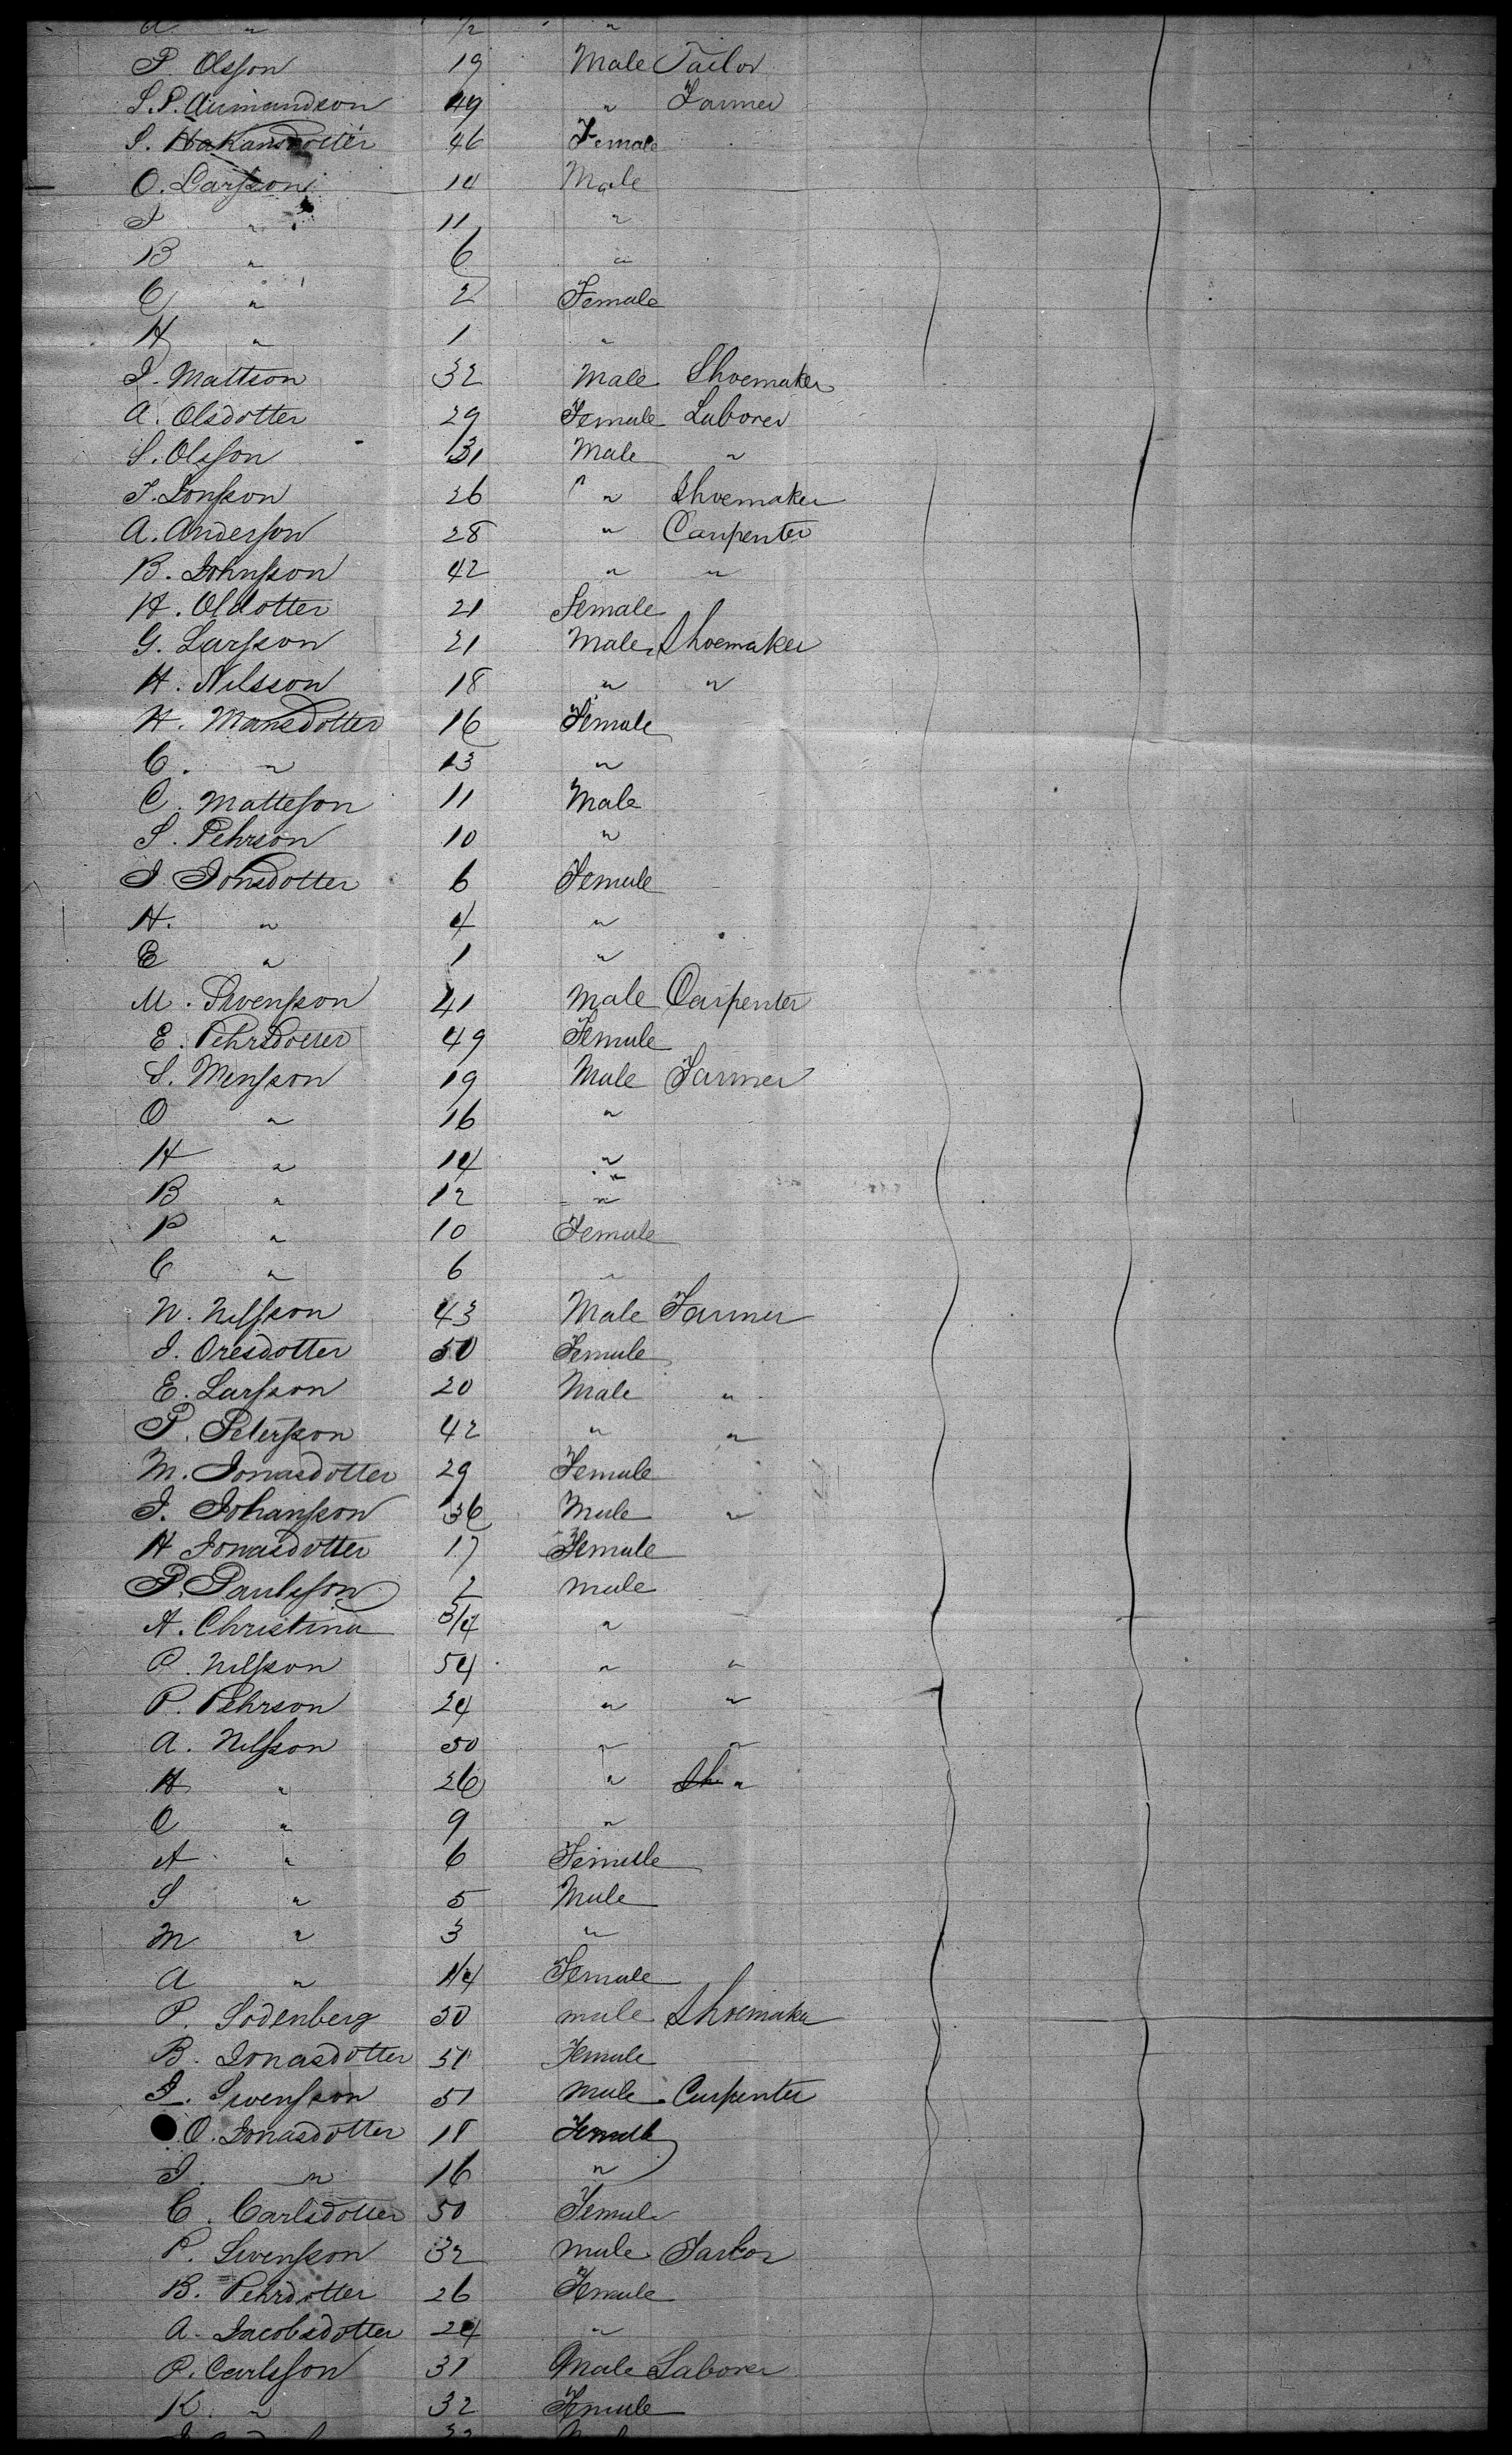 a " 1/2 "
P. Olsson 19 Male Tailor
S. P. Aumundson 49 " Farmer
S. Hakansdotter 46 Female
O. Larsson 14 Male
" 11 "
B " 6 "
C " 2 Female
H " 1 "
I. Mattson 32 Male Shoemaker
A. Olsdotter 29 Female Laborer
S. Olsson 31 Male "
J. Jonsson 26 " Shoemaker
A. Anderson 28 " Carpenter
B. Johnsson 42 " "
H. Oldotter 21 Female
G. Larsson 21 Male Shoemaker
H. Nilsson 18 " "
H. Mansdotter 16 Female
C. " 13 "
C. Matteson 11 Male
S. Pehrson 10 "
I Jonsdotter 6 Female
H. " 4 "
E " 1 "
M. Svensson 41 Male Carpenter
E. Pehrsdotter 49 Female
S. Monsson 19 Male Farmer
O " 16 "
H " 14 "
B " 12 "
P " 10 Female
C " 6 "
N. Nilsson 43 Male Farmer
I. Oresdotter 50 Female
E. Larsson 20 Male "
P. Petersson 42 " "
M. Jonasdotter 29 Female
J. Johansson 36 Male "
H Jonasdotter 17 Female
P. Paulsson 2 male
A. Christina 3/4 "
P. Nilsson 54 " "
P. Pehrson 24 " "
A. Nilsson 50 " "
H " 26 " Sh "
O " 9 "
A " 6 Female
S " 5 Male
M " 3 "
A " 1/4 Female
P. Sodenberg 50 male Shoemaker
B. Jonasdotter 51 Female
I. Swensson 51 male Carpenter
O. Jonasdotter 18 Female
I. " 16 "
C. Carlsdotter 50 Female
P. Swensson 32 male Tailor
B. Pehrdotter 26 Female
A. Jacobsdotter 24 "
P. Carlsson 31 Male Laborer
K. " 32 Female